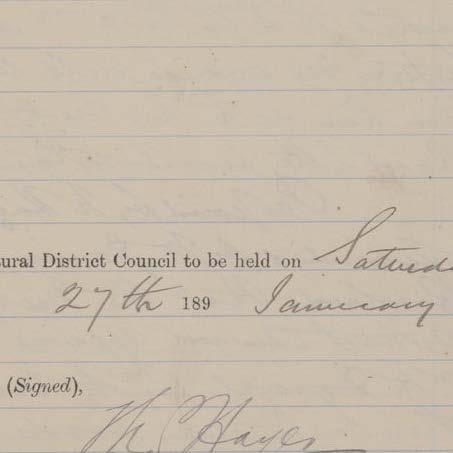 ural District Council to be held on Saturd
27th 189 January
(Signed),
Hayes